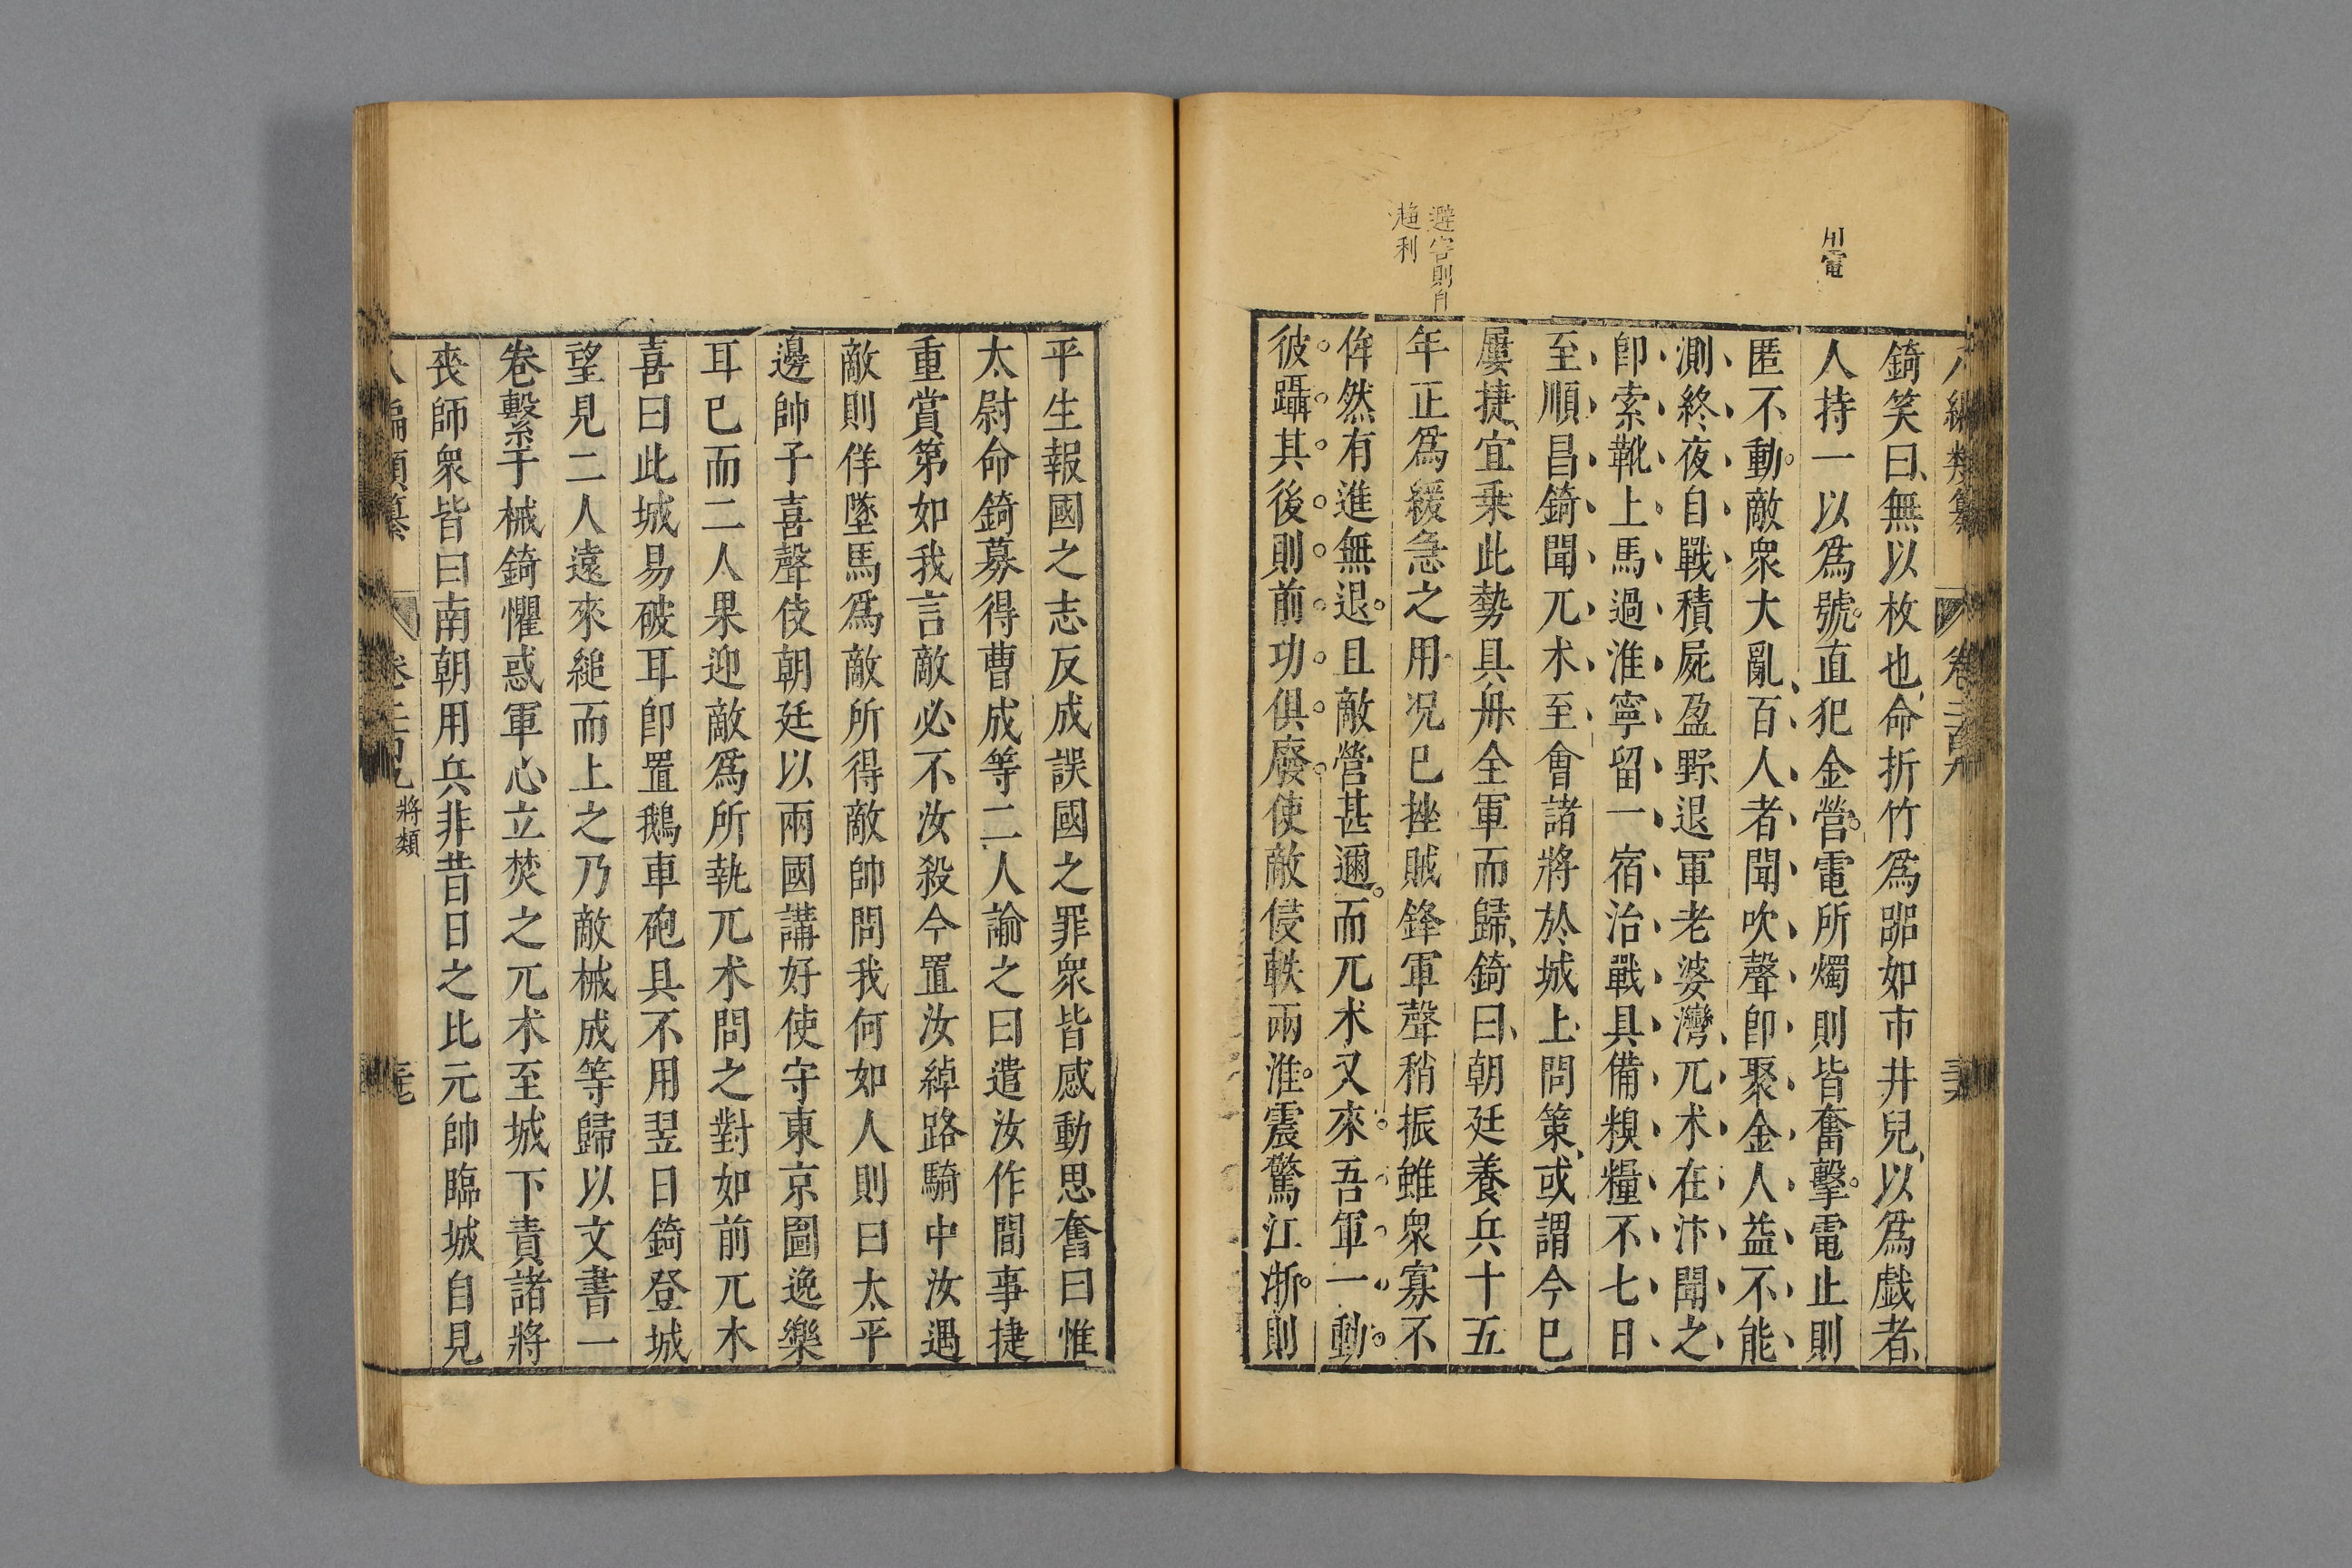 用電
避害則自
趨利
八編類纂
卷二百八
錡笑曰、無以枚也、命折竹爲嘂如市井兒、以爲戯者、
人持一以爲號。直犯金營。電所燭則皆奮擊。電止則
匿不動。敵衆大亂、百人者聞吹聲卽聚金人益不能
測終夜自戰積屍盈野、退軍老婆灣、兀朮在汴聞之
卽索靴上馬過淮寧留一宿治戰具備糗糧不七日
至順昌錡聞兀朮至會諸將於城上問策、或謂今巳
屢捷、宜乗此勢具舟全軍而歸、錡曰、朝廷養兵十五
年正爲緩急之用况巳挫賊鋒軍聲稍振雖衆寡不
侔然有進無退。且敵營甚邇。而兀朮又來。吾軍一動。
彼躡其後則前功俱廢使敵侵軼兩淮。震驚江浙。則
平生報國之志反成誤國之罪衆皆感動思奮曰惟
太尉命錡募得曹成等二人諭之曰遣汝作間事捷
重賞第如我言敵必不汝殺今置汝綽路騎中汝遇
敵則佯墜馬爲敵所得敵帥問我何如人則曰太平
邊帥子喜聲伎朝廷以兩國講好使守東京圖逸樂
耳巳而二人果迎敵爲所執兀朮問之對如前兀朮
喜曰此城易破耳卽置鵝車砲具不用翌日錡登城
望見二人遠來縋而上之乃敵械成等歸以文書一
卷繫于械錡懼惑軍心立焚之兀朮至城下責諸將
喪師衆皆曰南朝用兵非昔日之比元帥臨城自見
八編類纂
將類